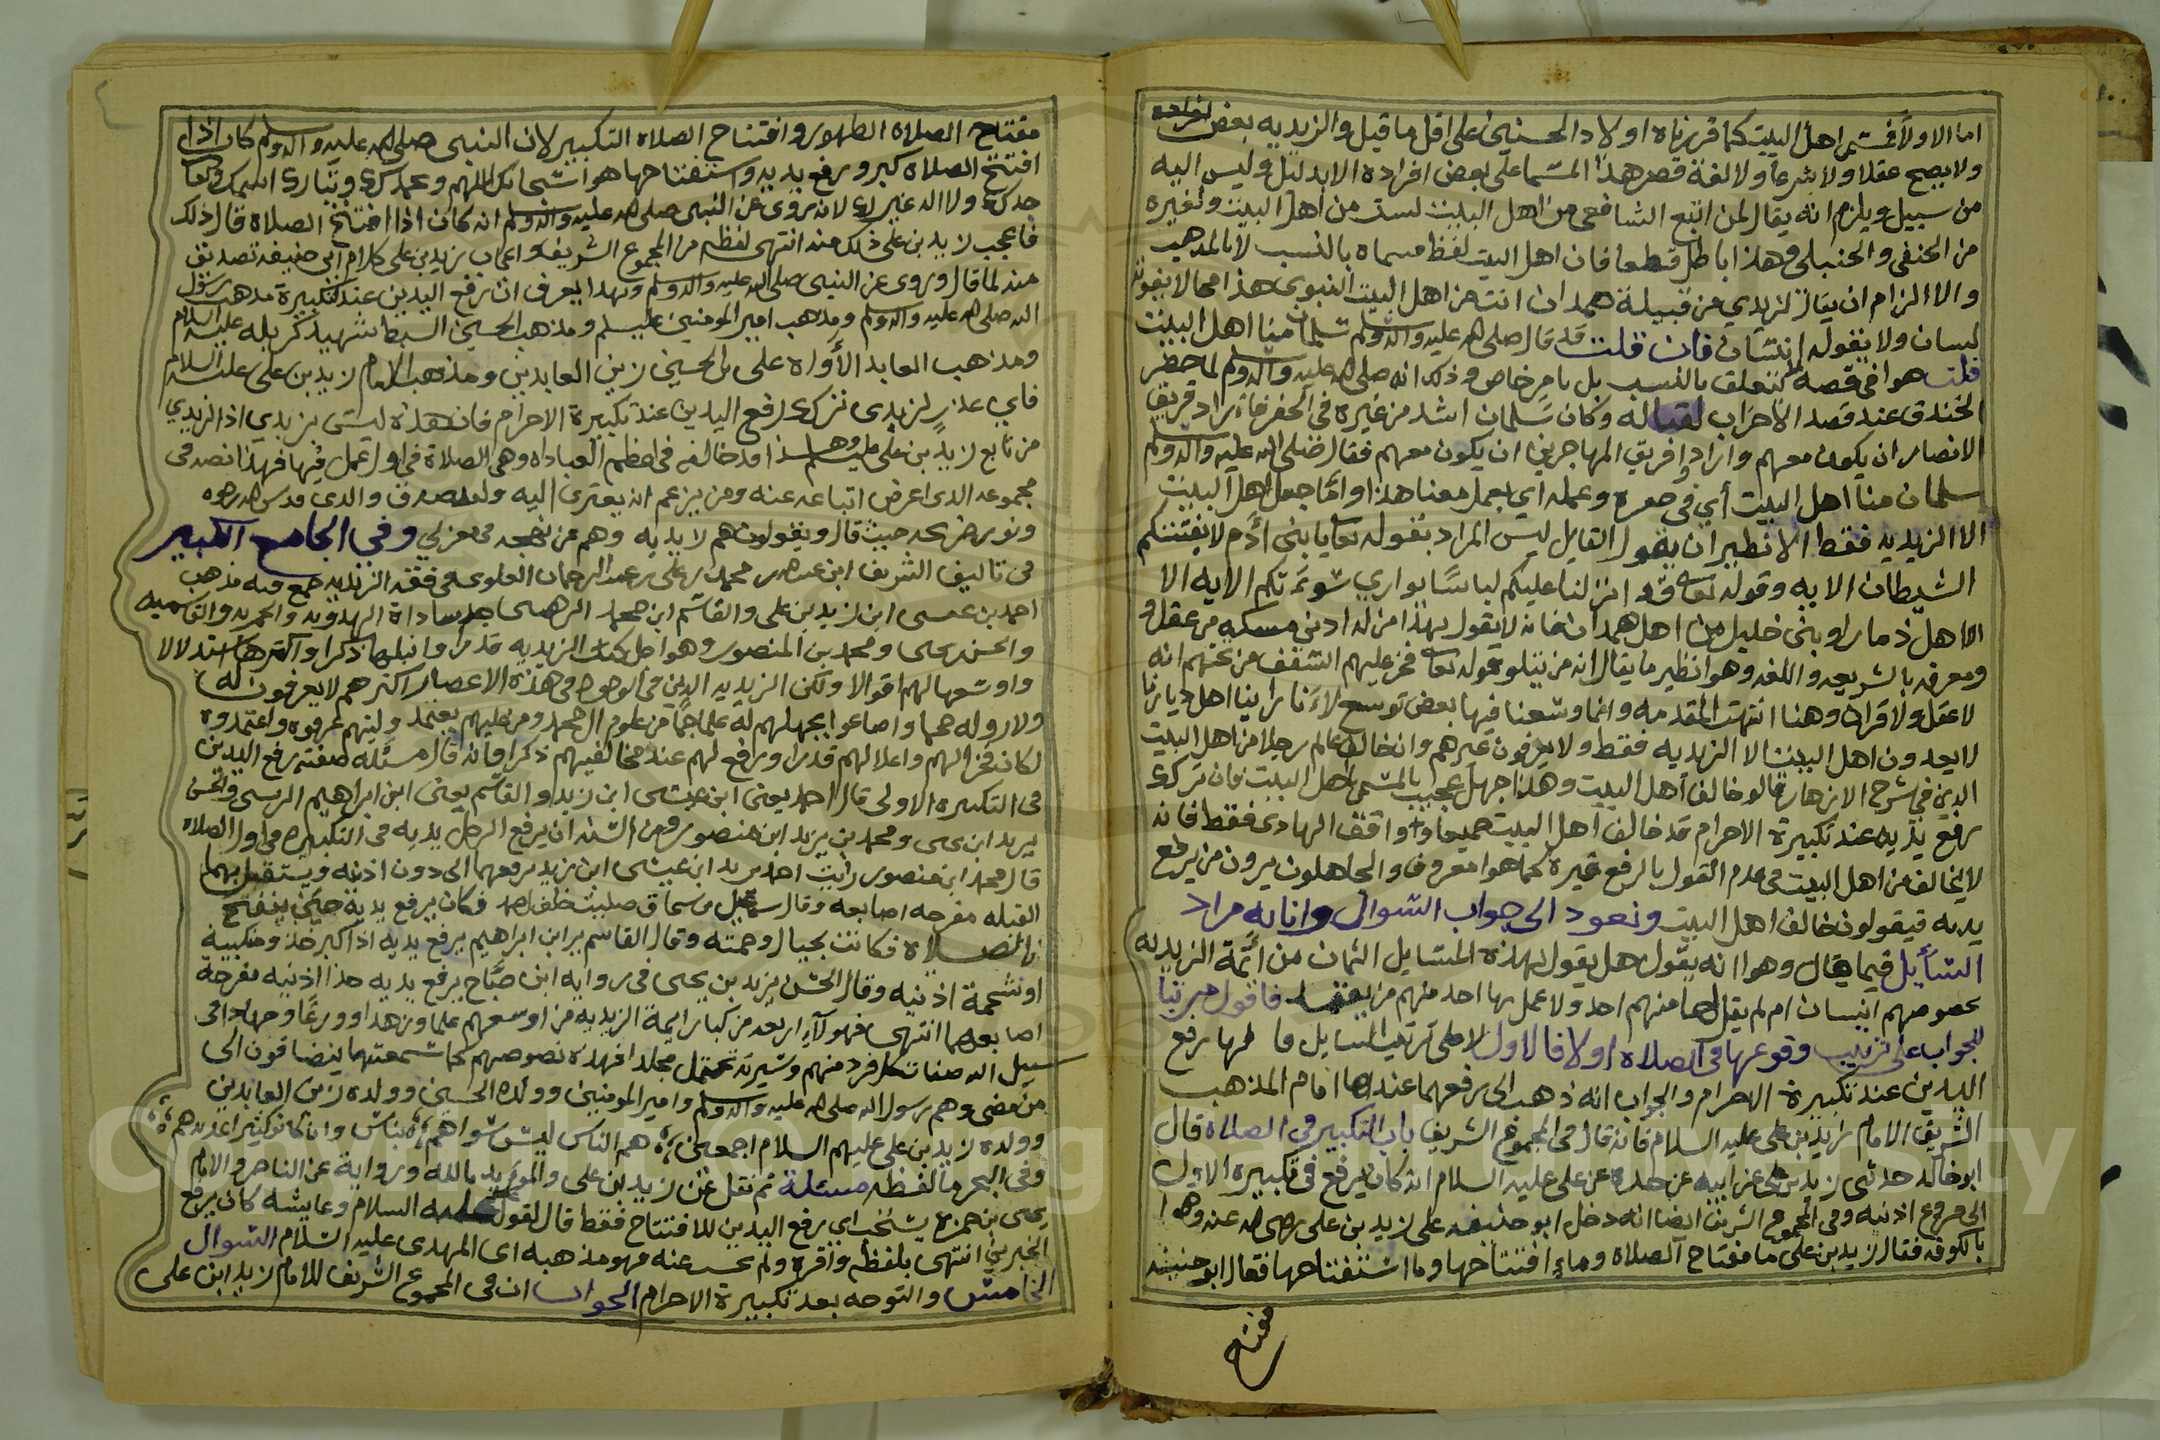 اما الاولا فمسمى اهل البيت كما قررناه اولاد الحسنين على اقل ما قيل والزيديه بعض افراده
ولا يصح عقلا ولا شرعا ولا لغة قصر هذا المسما على بعض افراده الا بدليل وليس اليه
من سبيل ويلزم انه يقال لمن اتبع الشافعي من اهل البيت لست من اهل البيت ولغيره
من الحنفي والحنبلي وهذا باطل قطعا فان اهل البيت لفظ مسماه بالنسب لا بالمذهب
والا لزم ان يقال لزيدي من قبيلة همدان انت من اهل البيت النبوي هذا مما لا يفوه به
لسان ولا يقوله انسان فان قلت قد قال صلى الله عليه واله وسلم سلمان منا اهل البيت
قلت هوا في قصه لا تتعلق بالنسب بل بامر خاص وذلك انه صلى الله عليه واله وسلم لما حضر
الخندق عند قصد الاحزاب لقتاله وكان سلمان اشد من غيره في الحفر فاراد فريق
الانصار ان يكون معهم واراد فريق المهاجرين ان يكون معهم فقال صلى الله عليه واله وسلم
سلمان منا اهل البيت أي في حفره وعمله اي يعمل معنا هذا واما جعل اهل البيت
الا الزيديه فقط الا نظير ان يقول القايل ليس المراد بقوله تعالى يا بني أدم لا يفتننكم
الشيطان الايه وقوله تعالى قد انزلنا عليكم لباسا يواري سوءتكم الايه الا
الا اهل ذمار او بني خليل من اهل همدان فانه لا يقول بهذا من له ادنى مسكه من عقل و
ومعرفه بالشريعه واللغه وهوا نظير ما يقال انه من يتلو قوله تعالى فخر عليهم السقف من تحتهم انه
لا عقل ولا قران وهنا انتهت المقدمه وانما وسعنا فيها بعض توسع لاننا راينا اهل ديارنا
لا يعدون اهل البيت الا الزيديه فقط ولا يعرفون غيرهم وان خالف عالم رجلا من اهل البيت
الذين في شرح الازهار قالو خالف أهل البيت وهذا جهل عجيب بالمسمى باهل البيت فان ترك
رفع يديه عند تكبيرة الاحرام قد خالف اهل البيت جميعا و واقف الهادي فقط فانه
لا يخالف من اهل البيت في عدم القول بالرفع غيره كما هوا معروف والجاهلون يرون من يرفع
يديه فيقولون خالف اهل البيت ونعود الى جواب السوال وانا به مراد
السأيل فيما قال وهوا انه يقول هل يقول بهذه المسايل الثمان من أئمة الزيديه
بخصوصهم انسان ام لم يقل بها منهم احد ولا عمل بها احد منهم من فاقول مرتبا
للجواب على ترتيب وقوعها في الصلاه اولا فالاول لا على ترتيب السايل فا لها رفع
اليدين عند تكبيرة الاحرام والجواب انه ذهب الى رفعهما عندها امام المذهب
الشريف الامام زيد بن على عليه السلام فانه قال في المجموع الشريف باب التكبير في الصلاه قال
ابو خالد حدثني زيد بن على عن ابيه عن جده عن على عليه السلام انه كان يرفع في تكبيره الاولى
الى فروع اذنيه وفي المجموع الشريف ايضا انه دخل ابو حنيفه على زيد بن على رضى الله عنه وهوا
بالكوفه فقال زيد بن على ما مفتاح الصلاه وما افتتاحها وما استفتاحها فقال ابو حنيفه
مفتاح
مفتاح الصلاه الطهور وافتتاح الصلاه التكبير لان النبي صلى الله عليه واله وسلم كان اذا
افتتح الصلاه كبر ورفع يديه واستفتاحها هوا سبحانك اللهم وبحمدك وتبارك اسمك وتعالى
جدك ولا اله غيرك لانه روى عن النبي صلى الله عليه واله وسلم انه كان اذا افتتح الصلاة قال ذلك
فاعجب زيد بن على ذلك منه انتهى لفظه من المجموع الشريف واعجاب زيد بن على كلام ابي حنيفه تصديق
منه لما قال وروى عن النبي صلى الله عليه واله وسلم وبهذا يعرف ان رفع اليدين عند تكبيرة مذهب رسول
الله صلى الله عليه واله وسلم ومذهب امير المومنين عليسلم ومذهب الحسين السبط شهيد كربله عليه السلام
ومذهب العابد الأواه على بن الحسين زين العابدين ومذهب الامام زيد بن على عليه السلام
فاي عذر لزيدي ترك رفع اليدين عند تكبيرة الاحرام فان هذه ليس بزيدي اذ الزيدي
من تابع زيد بن على وهذا قد خالفه في اعظم العبادات وهي الصلاة في اول عمل فيها فهذا نصه في
مجموعه الذي اعرض اتباعه عنه ومن يزعم انه يعتزى اليه ولقد صدق والدي قدس الله روحه
ونور ضريحه حيث قال ويقولون هم لا يديه وهم عن نهجه في معزل وفي الجامع الكبير
في تاليف الشريف ابن عبدالله محمد بن على بن عبد الرحمان العلوي في فقه الزيديه جمع فيه مذهب
احمد بن عيسى ابن زيد بن على والقاسم ابن محمد الرسي جد سادات الهدويه والحمزيه والقاسميه
والحسن بن يحيى ومحمد بن المنصور وهوا اجل كتاب الزيديه قدرا وانبلها ذكرا واكثرها استدلالا
واوسعها لهم اقوالا ولكن الزيديه الذين في الوجود في هذه الاعصار اكثرهم لا يعرفون له
ولا رووله واضاعوا بجهلهم له علما جما من علوم ال محمد ومن عليهم يعتمد وليتهم عرفوه واعتمدوه
لكان فخرا لهم واعلا لهم قدرا ورافع لهم عند مخالفيهم ذكرا فانه قال مسئله صفة رفع اليدين
في التكبيره الاولى قال احمد يعني ابن عيسى ابن زيد والقاسم يعني ابن ابراهيم الرسي والحسن
يريد ابن يحيى ومحمد بن يريد ابن منصور ومن السنه ان يرفع الرجل يديه في التكبيره في اول الصلاه
قال محمد ابن منصور رأيت احمد يريد ابن عيسى ابن زيد يرفعهما الى دون اذنيه ويستقبل بهما
القبله مفرجه اصابعه وقال صليت خلف فكان يرفع يديه حين يفتتح
الصلاة فكانت بحيال وجهه وقال القاسم بن ابراهيم يرفع يديه اذا كبر حذو منكبيه
او شحمة اذنيه وقال الحسن يريد بن يحيى في روايه ابن صباح يرفع يديه حذا اذنيه مفرجه
اصابعهما انتهى فهولاء اربعه من كبار ايمة الزيديه من اوسعهم علما وزهدا وورعا وجهادا في
سبيل الله صفات كل فرد منهم وسيرته تحتمل مجلدا فهذه نصوصهم كما سمعتهما ينضافون الى
من مضى وهم رسول الله صلى الله عليه واله وسلم وامير المومنين وولده الحسين وولده زين العابدين
وولده زيد بن على عليهم السلام اجمعين هم الناس ليس سواهم بناس وانا كانو كثيرا عديدهم
وفي البحر ما لفظه مسئلة ثم نقل عن زيد بن على والمويد بالله ورواية عن الناصر والامام
يحيى بن حمزه يستحب اي يرفع اليدين للافتتاح فقط قال لقول عليه السلام وعايشه كان يرفع
الخبرين انتهى بلفظه واقره ولم يجب عنه فهو مذهبه اى المهدى عليه السلام السوال
الخامس والتوجه بعد تكبيرة الاحرام الجواب ان في المجموع الشريف للامام زيد ابن على
Copyright © King Saud University